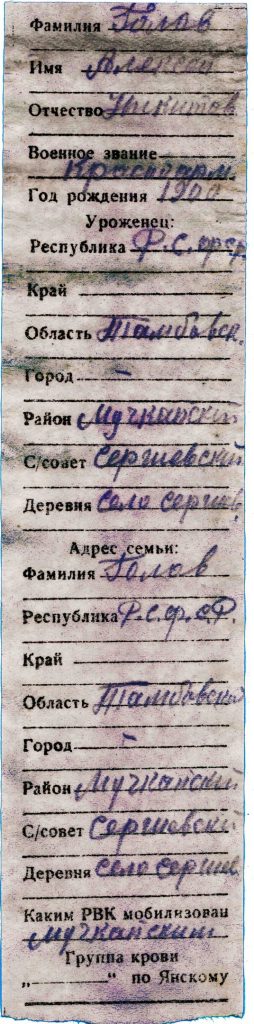 Фамилия Голов
Имя Алексей
Отчество Никитов
Военное звание
Красноарм.
Год рождения 1900
Уроженец:
Республика Р.С.Ф.С.Р.
Край
Область Тамбовск.
Город –
Район Мучкапский
С/совет Сергиевский
Деревня село Сергиев.
Адрес семьи:
Фамилия Голов
Республика Р.С.Ф.С.Р.
Край
Область Тамбовской
Город –
Район Мучкапский
С/совет Сергиевский
Деревня село Сергиев.
Каким РВК мобилизован
Мучкапским
Группа крови
„ “ по Янскому